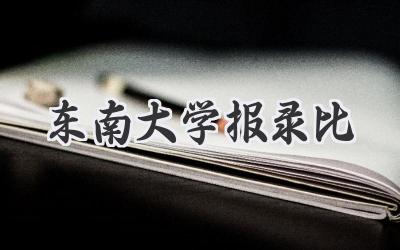 东南大学报录比